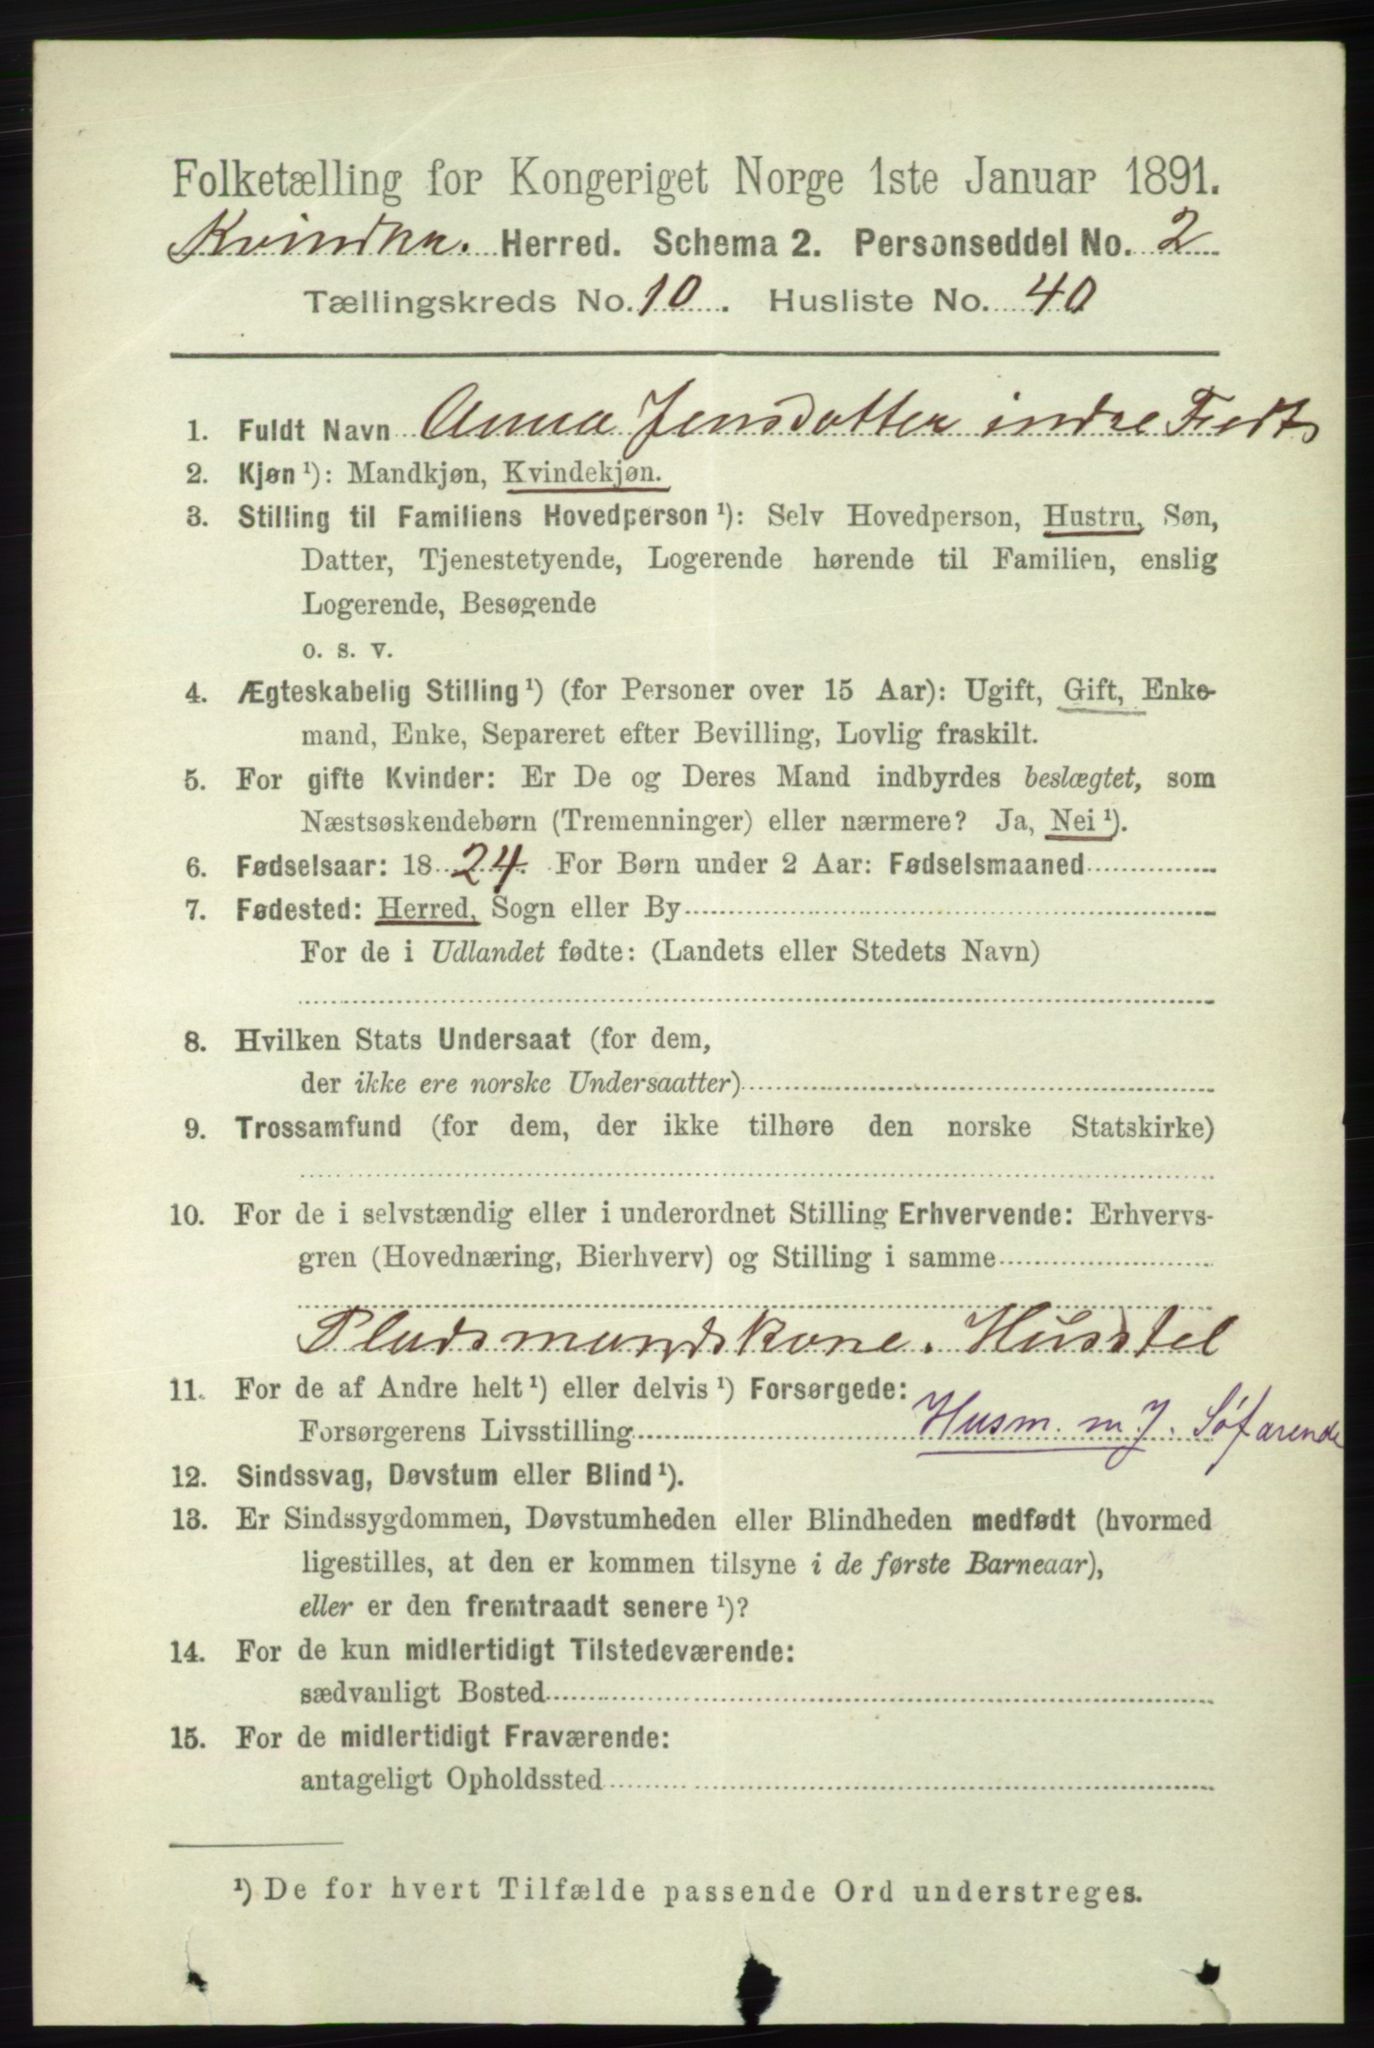 Folketælling for Kongeriget Norge 1ste Januar 1891.
Kvindhr. Herred. Schema 2. Personseddel No. 2
Tællingskreds No. 10. Husliste No. 40
1. Fuldt Navn Anna Jensdatter indre
2. Kjøn ¹): Mandkjøn, Kvindekjøn.
3. Stilling til Familiens Hovedperson ¹): Selv Hovedperson, Hustru, Søn,
Datter, Tjenestetyende, Logerende hørende til Familien, enslig
Logerende, Besøgende
o. s. v.
4. Ægteskabelig Stilling ¹) (for Personer over 15 Aar): Ugift, Gift, Enke-
mand, Enke, Separeret efter Bevilling, Lovlig fraskilt.
5. For gifte Kvinder: Er De og Deres Mand indbyrdes beslægtet, som
Næstsøskendebørn (Tremenninger) eller nærmere? Ja, Nei ¹).
6. Fødselsaar: 1824. For Børn under 2 Aar: Fødselsmaaned
7. Fødested: Herred, Sogn eller By
For de i Udlandet fødte: (Landets eller Stedets Navn)
8. Hvilken Stats Undersaat (for dem,
der ikke ere norske Undersaatter)
9. Trossamfund (for dem, der ikke tilhøre den norske Statskirke)
10. For de i selvstændig eller i underordnet Stilling Erhvervende: Erhvervs-
gren (Hovednæring, Bierhverv) og Stilling i samme
Pladsmandskone. Husstel
11. For de af Andre helt ¹) eller delvis ¹) Forsørgede:
Forsørgerens Livsstilling Husm. m J. Søfarende
12. Sindssvag, Døvstum eller Blind ¹).
13. Er Sindssygdommen, Døvstumheden eller Blindheden medfødt (hvormed
ligestilles, at den er kommen tilsyne i de første Barneaar),
eller er den fremtraadt senere ¹)?
14. For de kun midlertidigt Tilstedeværende:
sædvanligt Bosted
15. For de midlertidigt Fraværende:
antageligt Opholdssted
¹) De for hvert Tilfælde passende Ord understreges.